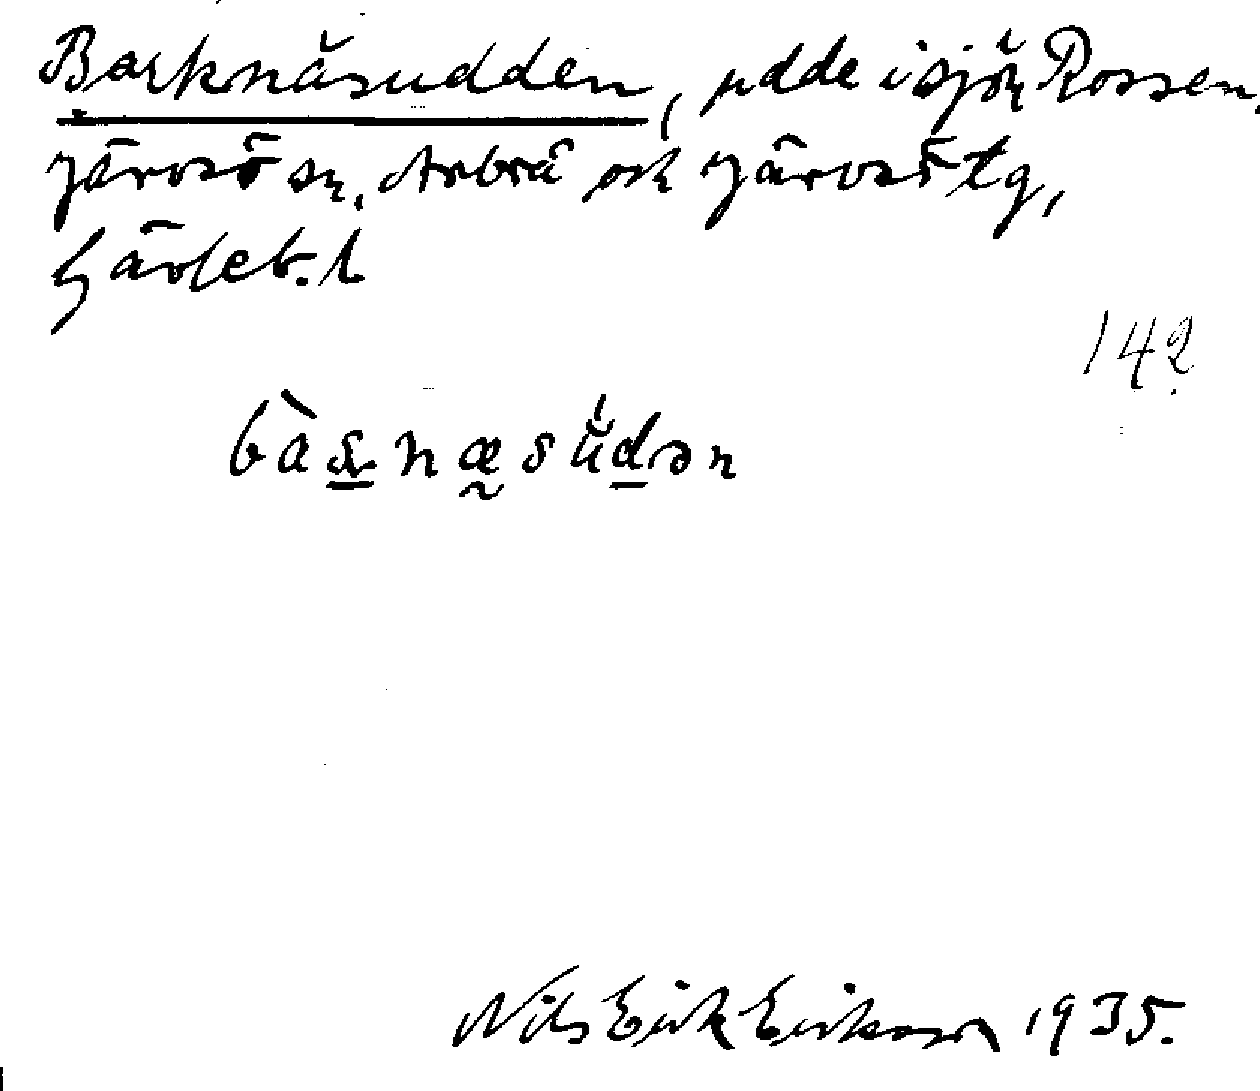 Barknäsudden, udde i sjön Rossen,
Järvsö sn, Arbrå och Järvsö tg,
Gävleb. l
142
Nils Erik Erikson 1935.